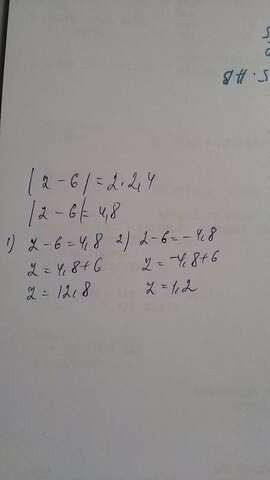 |z - 6| = 2·2,4
|z - 6| = 4,8
1) z - 6 = 4,8 2) z - 6 = -4,8
z = 4,8 + 6 z = -4,8 + 6
z = 12,8 z = 1,2